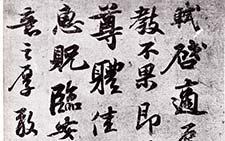 軾啓適
教不果即
尊體佳
惠貺臨安
意之厚敢